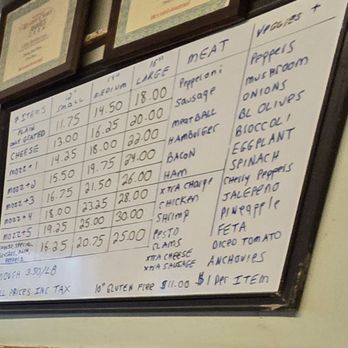 # ITEMS 12" SMALL 14" MEDIUM 16" LARGE
PLAIN
ONLY GRATED 11.75 14.50 18.00
CHEESE 13.00 16.25 20.00
MOZZ+1 14.25 18.00 22.00
MOZZ+2 15.50 19.75 24.00
MOZZ+3 16.75 21.50 26.00
MOZZ+4 18.00 23.25 28.00
MOZZ+5 19.25 25.00 30.00
SPECIAL 16.25 20.75 25.00
MEAT
Pepperoni
Sausage
MEATBALL
HAMburger
BACON
HAM
XTRA CHARGE
CHICKEN
SHRIMP
PESTO
CLAMS
XTRA CHEESE
XTRA SAUSAGE
VEGGIES +
Peppers
MUSHROOM
ONIONS
BL OLIVES
BROCCOLI
EGGPLANT
SPINACH
Cherry Peppers
JALEPENO
PINEAPPLE
FETA
DICED TOMATO
ANCHOVIES
OUGH 3.50/LB
LL PRICES INC TAX
10" GLUTEN FREE $11.00 $1 PER ITEM